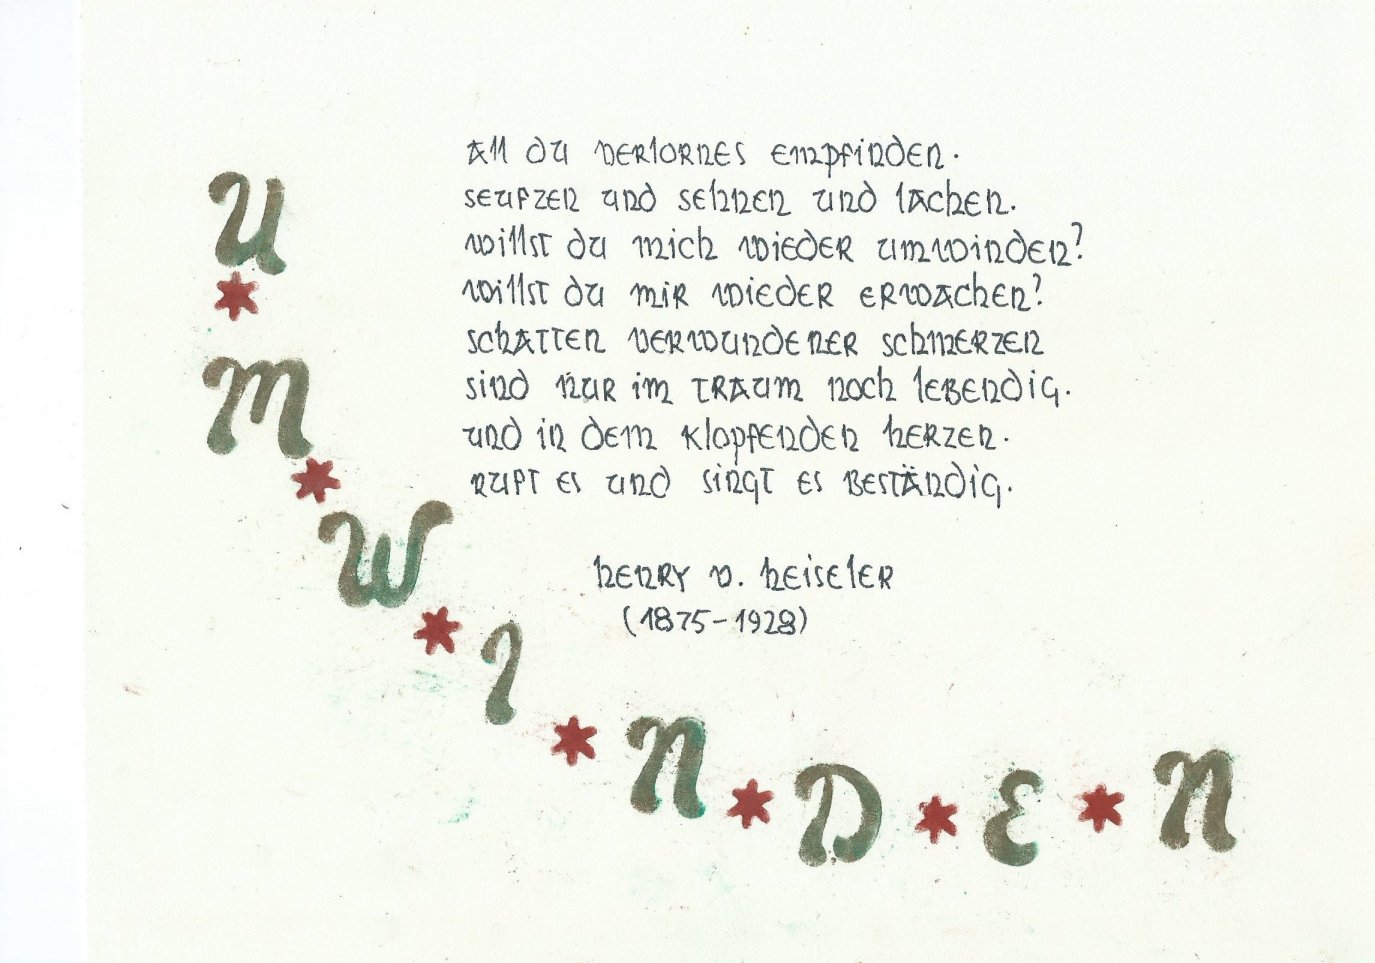 All du verlornes empfinden.
seufzen und sehnen und lachen.
willst du mich wieder umwinden?
willst du mir wieder erwachen?
schatten verwundener schmerzen
sind nur im traum noch lebendig.
und in dem klopfenden herzen.
ruft es und singt es beständig.
henry v. heiseler
(1875-1928)
U*M*W*I*N*D*E*N